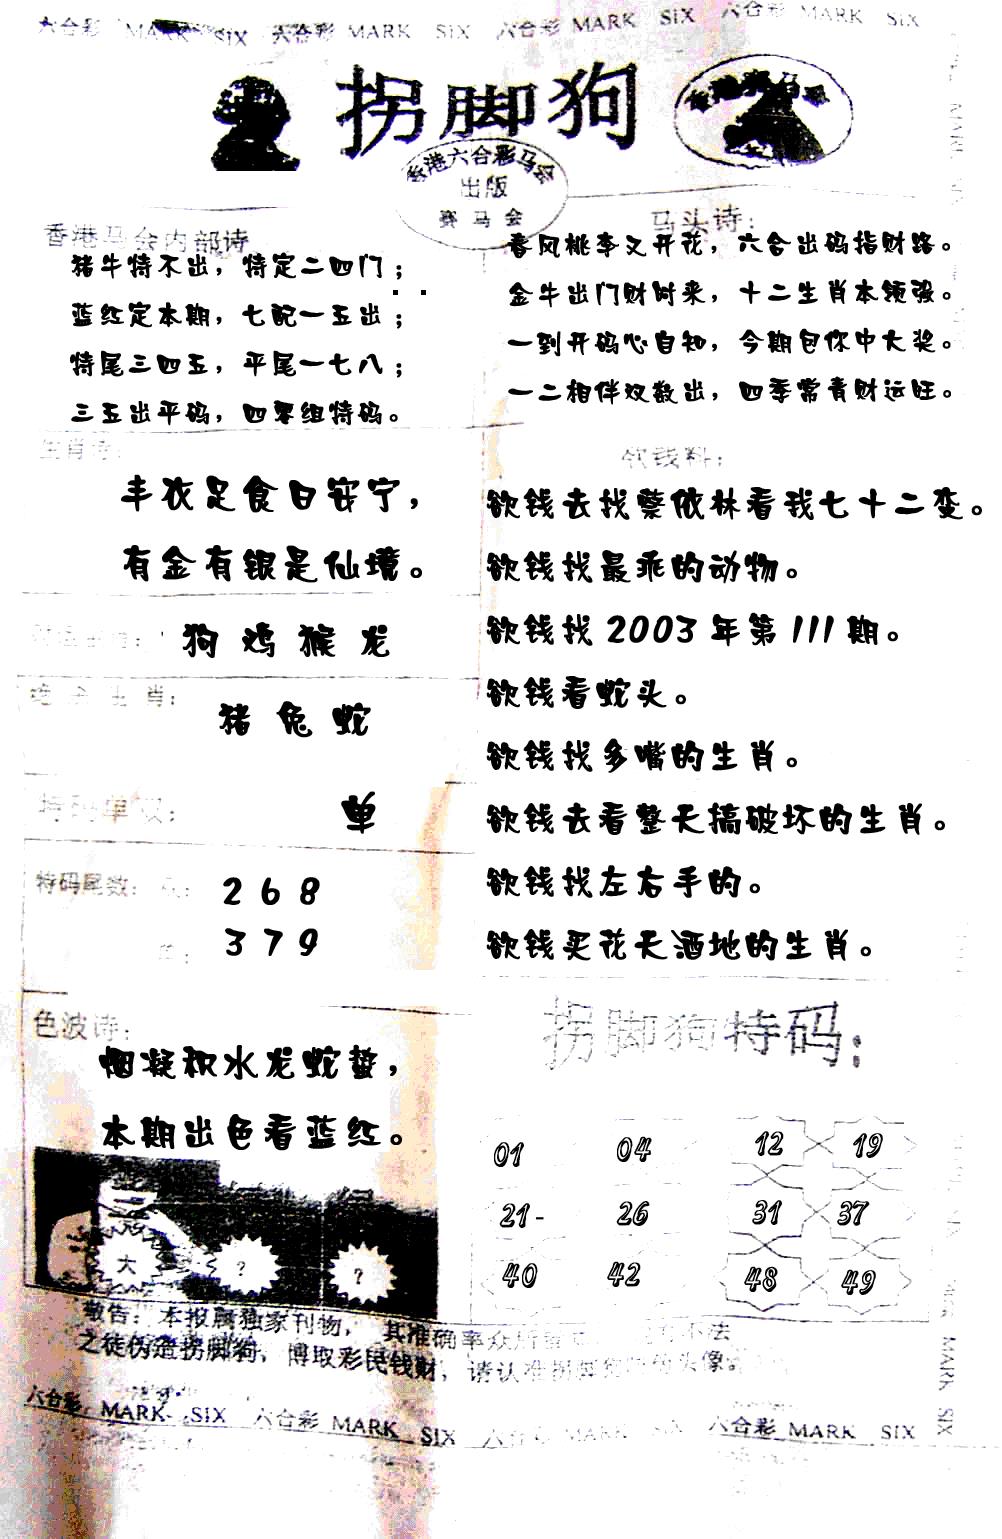 六合彩 MARK SIX 六合彩 MARK SIX 六合彩 MARK SIX 六合彩 MARK SIX
拐脚狗
香港六合彩马会
出版
赛马会
香港马会内部诗
猪牛特不出，特定二四门；
蓝红定本期，七配一五出；
特尾三四五，平尾一七八；
三五出平码，四零组特码。
马头诗：
春风桃李又开花，六合出码指财路。
金牛出门财时来，十二生肖本领强。
一到开码心自知，今期包你中大奖。
一二相伴双数出，四季常青财运旺。
生肖诗：
丰衣足食日安宁，
有金有银是仙境。
狗 鸡 猴 龙
绝杀生肖：
猪 兔 蛇
特码单双：
单
特码尾数：
2 6 8
3 7 9
色波诗：
烟凝积水龙蛇蛰，
本期出色看蓝红。
大 ? ?
欲钱料：
欲钱去找蔡依林看我七十二变。
欲钱找最乖的动物。
欲钱找2003年第111期。
欲钱看蛇头。
欲钱找多嘴的生肖。
欲钱去看整天搞破坏的生肖。
欲钱找左右手的。
欲钱买花天酒地的生肖。
拐脚狗特码：
01 04 12 19
21- 26 31 37
40 42 48 49
敬告：本报属独家刊物，其准确率众所 不法
之徒伪造拐脚狗，博取彩民钱财，请认准拐脚狗 头像
六合彩 MARK SIX 六合彩 MARK SIX 六合彩 MARK SIX 六合彩 MARK SIX
MARK SIX